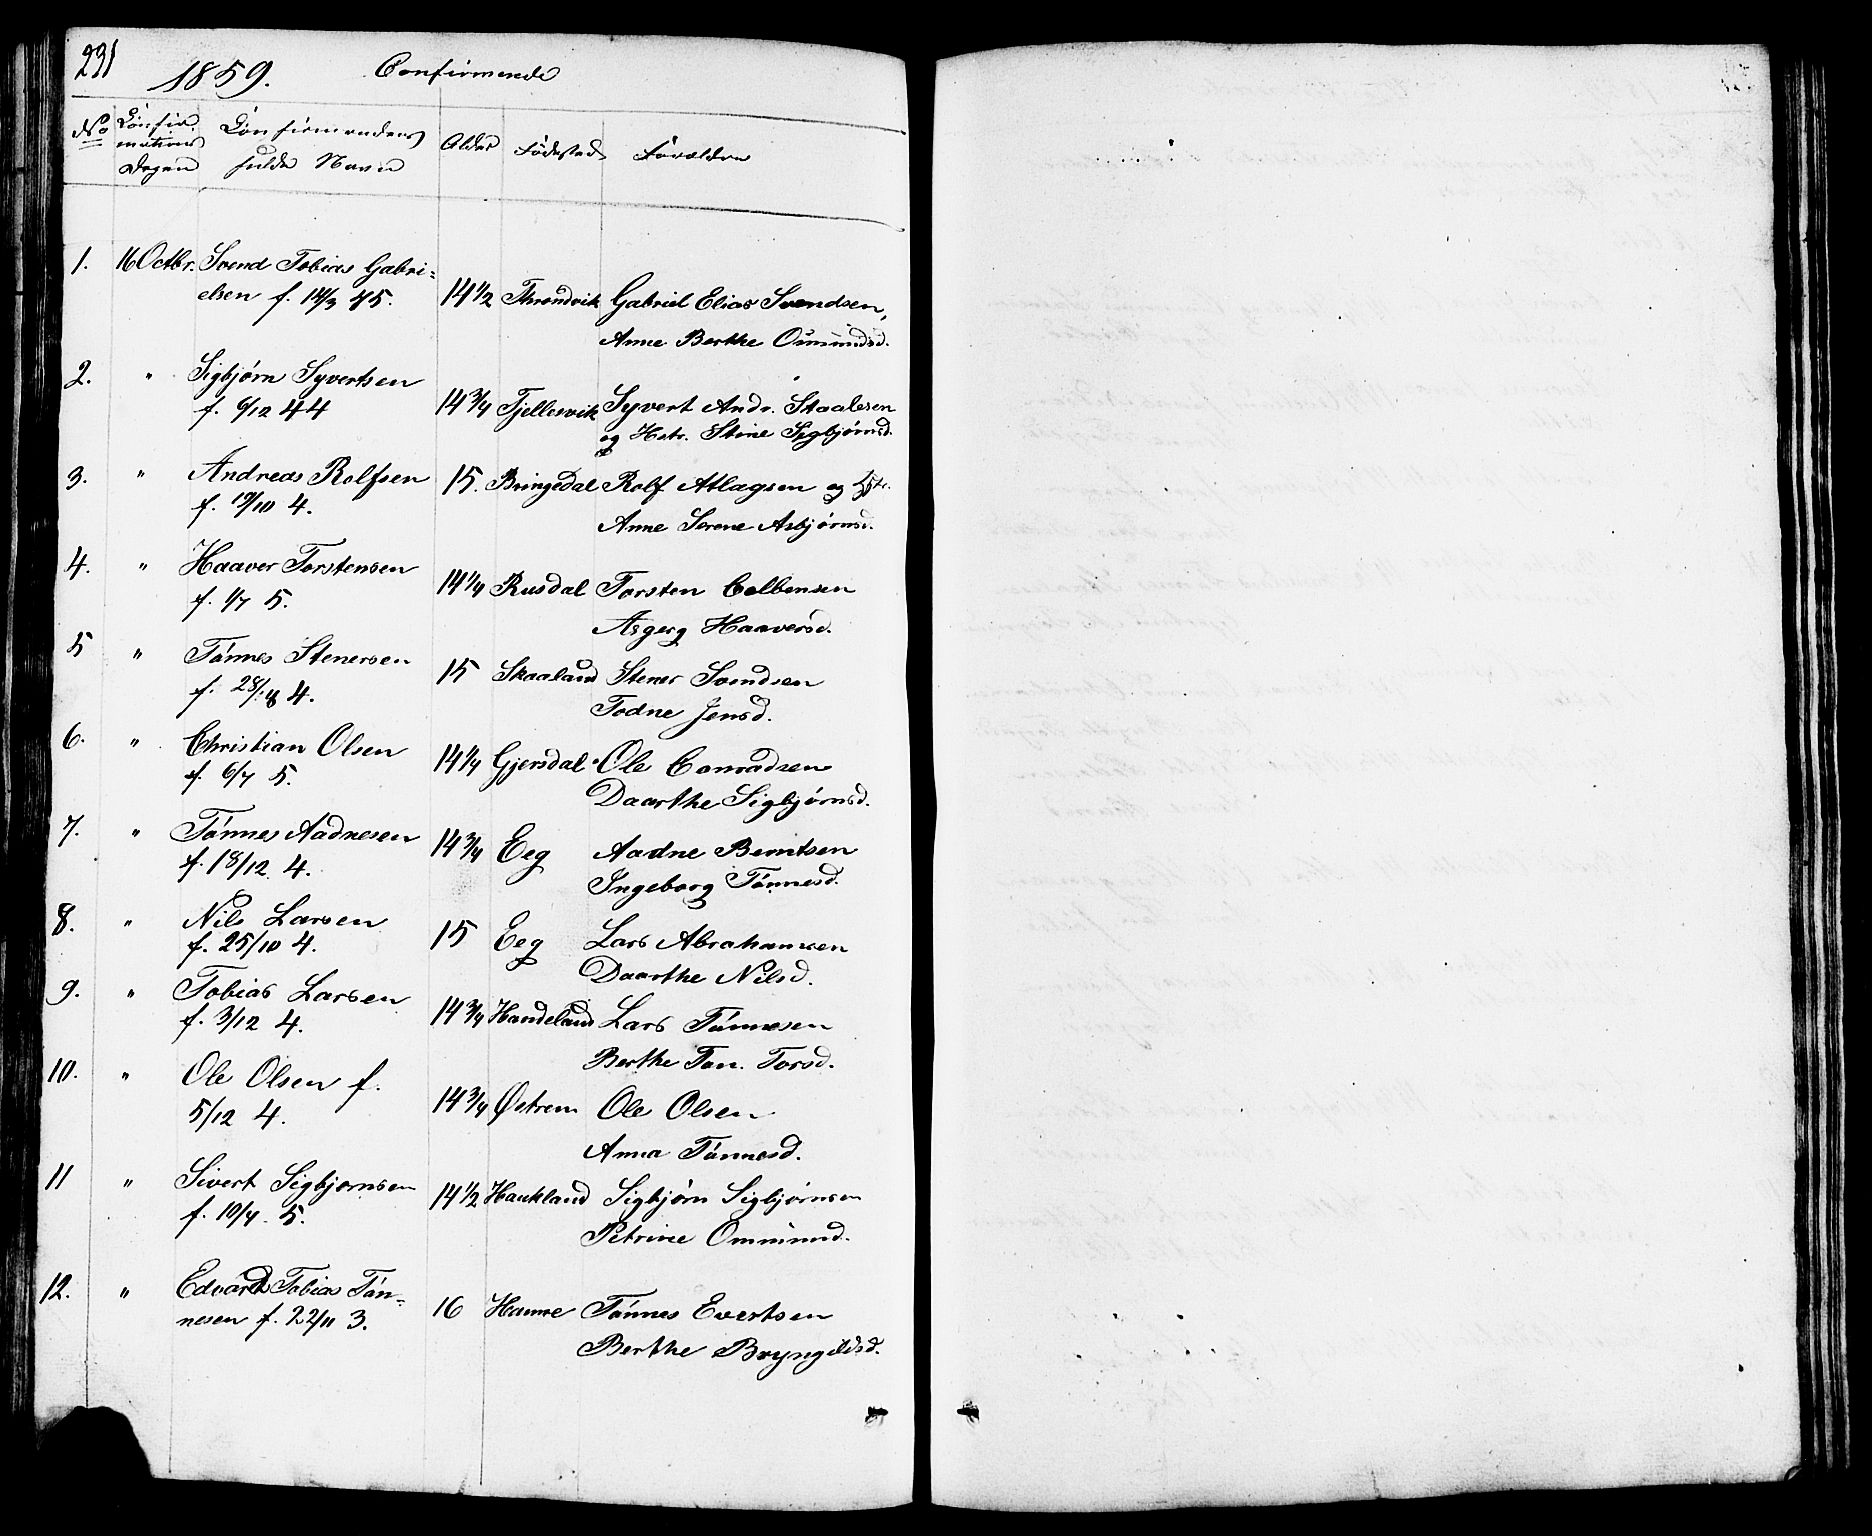 231 1859. Confirmende
No Confir- Confirmandens Alder Fødested Forældre
mations
Dagen fulde Navn
1. 16 Octbr. Svend Tobias Gabri-
elsen f. 14/3 45. 14 1/2 Throndvik Gabriel Elias Svendsen,
Anne Berthe Osmundsd.
2. " Sigbjørn Syvertsen
f. 6/12 44 14 3/4 Fjellesvik Syvert Andr. Staalesen
og Hstr. Stine Sigbjørnsd.
3. " Andreas Rolfsen 15. Bringedal Rolf Atlagsen og Hstr.
f. 19/10 4. Anne Serene Asbjørnsd.
4. " Haaver Torstensen
f. 1/7 5. 14 1/4 Rusdal Torsten Colbensen
Asgerg Haaversd.
5 " Tónnes Stenersen
f. 28/8 4. 15 Skaaland Stener Svendsen
Todne Jensd.
6. " Christian Olsen
f. 6/7 5. 14 1/4 Gjersdal Ole Conradsen
Daarthe Sigbjørnsd.
7. " Tónnes Aadnesen
f. 18/12 4. 14 3/4 Eeg Aadne Berntsen
Ingeborg Tónnesd.
8. " Nils Larsen
f. 25/10 4. 15 Eeg Lars Abrahamsen
Daarthe Nilsd.
9. " Tobias Larsen
f. 3/12 4. 14 3/4 Handeland Lars Tónnesen
Berthe Tan. Torsd.
10. " Ole Olsen f.
5/12 4. 14 3/4 Østrem Ole Olsen
Anna Tónnesd.
11 " Sivert Sigbjornsen
f. 10/4. 5. 14 1/2 Haukland Sigbjórn Sigbjórnsen
Petrine Ommund.
12. " Edvard Tobias Tón-
nesen f. 22/11 3. 16 Hamre Tónnes Evertsen
Berthe Bryngeldsd.